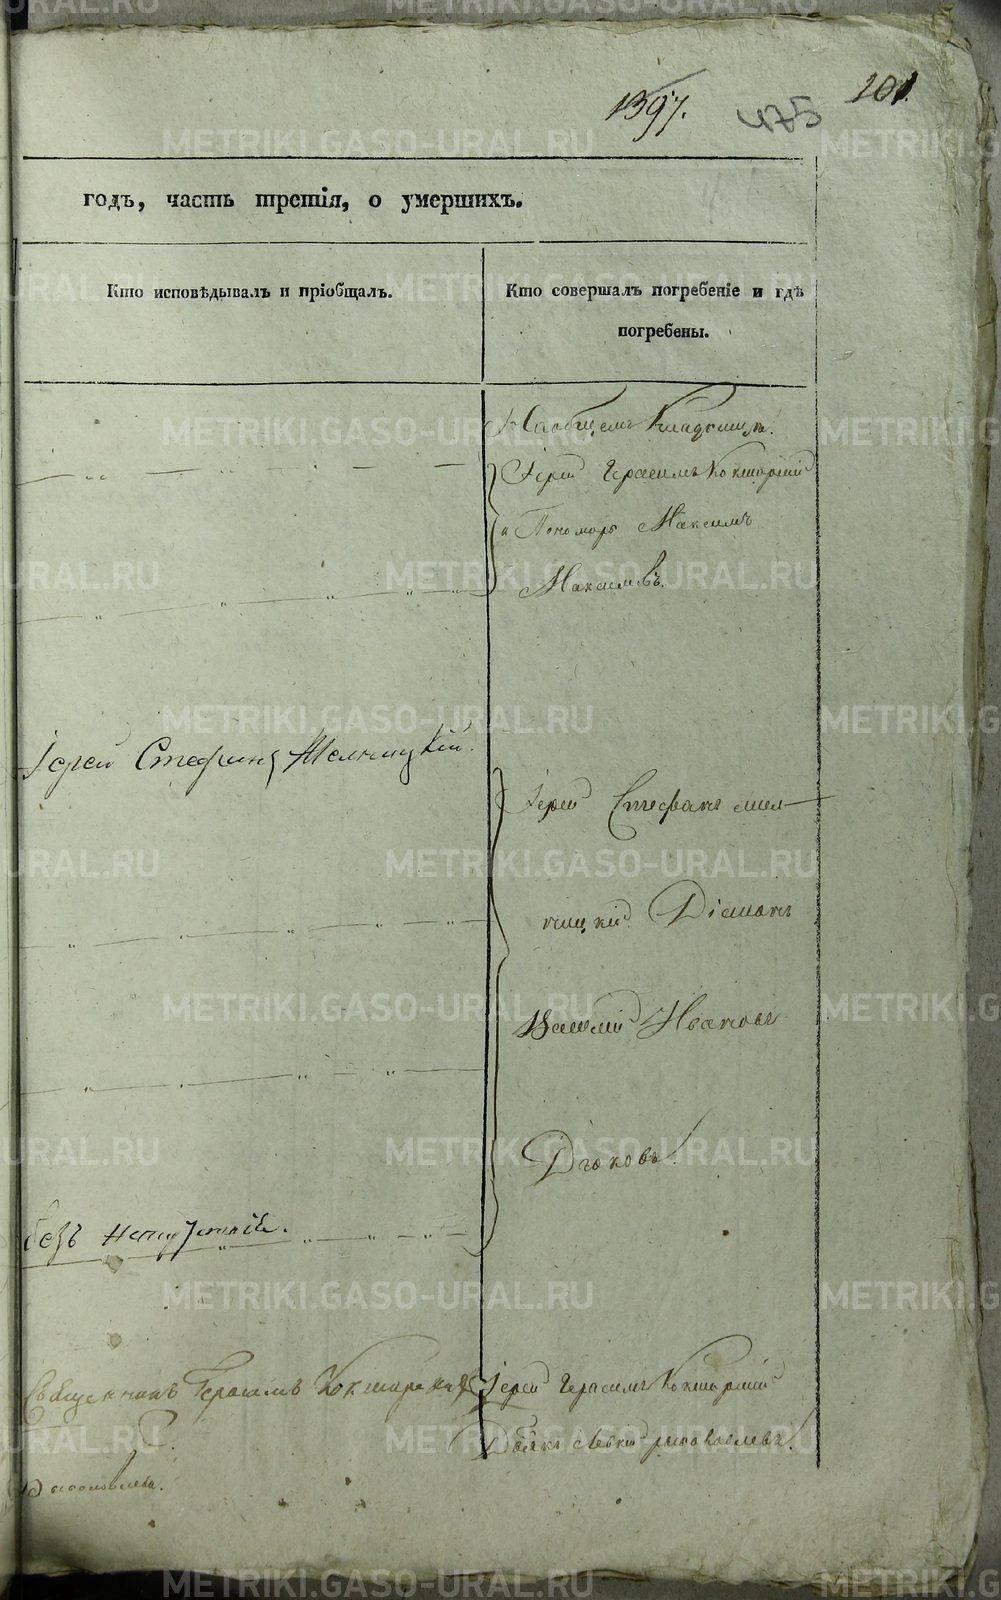 1397.
475
201.
годъ, часть третія, о умершихъ.
Кто исповѣдывалъ и пріобщалъ.
Кто совершалъ погребеніе и гдѣ
погребены.
На общемъ Кладбищѣ.
Іерей Герасимъ Кокшарскій
и Пономарь Максимъ
Максимовъ.
Іерей Стефанъ Мельницкій.
Іерей Стефанъ Мел-
ницкій Діаконъ
Василій Ивановъ
Дьяковъ.
безъ напутствія.
Священникъ Герасимъ Кокшарскій
Іерей Герасимъ Кокшарскій
METRIKI.GASO-URAL.RU